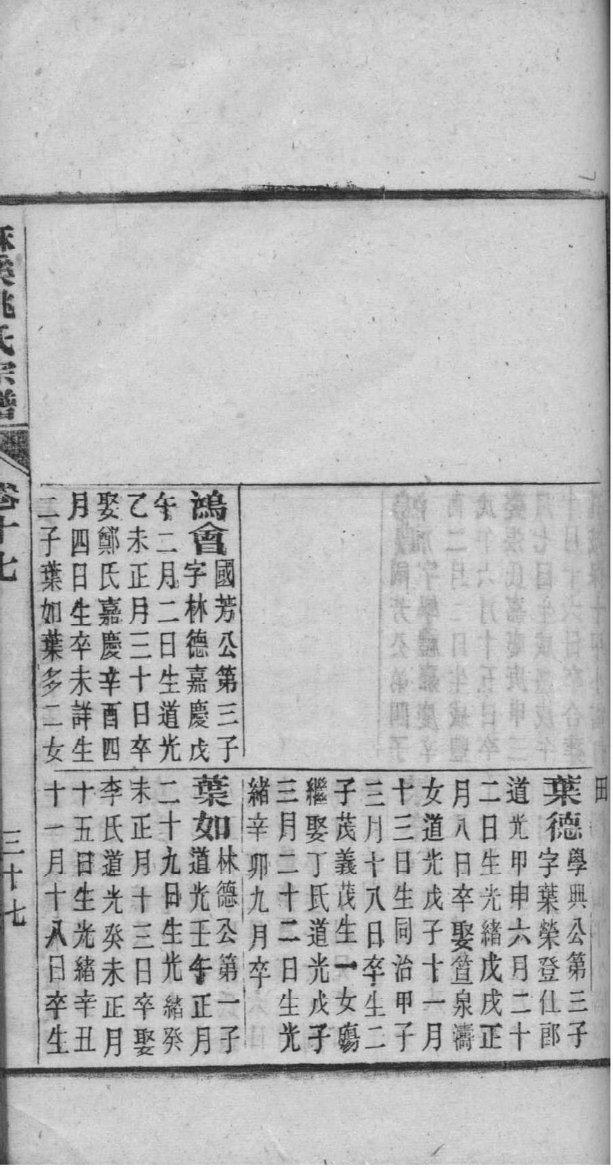 田
葉德學興公第三子
字葉榮登仕郎
道光甲申六月二十
二日生光緒戊戌正
月八日卒娶笪泉濤
女道光戊子十一月
十三日生同治甲子
三月十八日卒生二
子茂義茂生一女殤
繼娶丁氏道光戊子
三月二十二日生光
緒辛卯九月卒
鴻會國芳公第三子
字林德嘉慶戊
午二月二日生道光
乙未正月三十日卒
娶鄭氏嘉慶辛酉四
月四日生卒未詳生
二子葉如葉多二女
葉如林德公第一子
道光壬午正月
二十九日生光緒癸
未正月十三日卒娶
李氏道光癸未正月
十五日生光緒辛丑
十一月十八日卒生
姚氏宗譜
卷十七
三十七